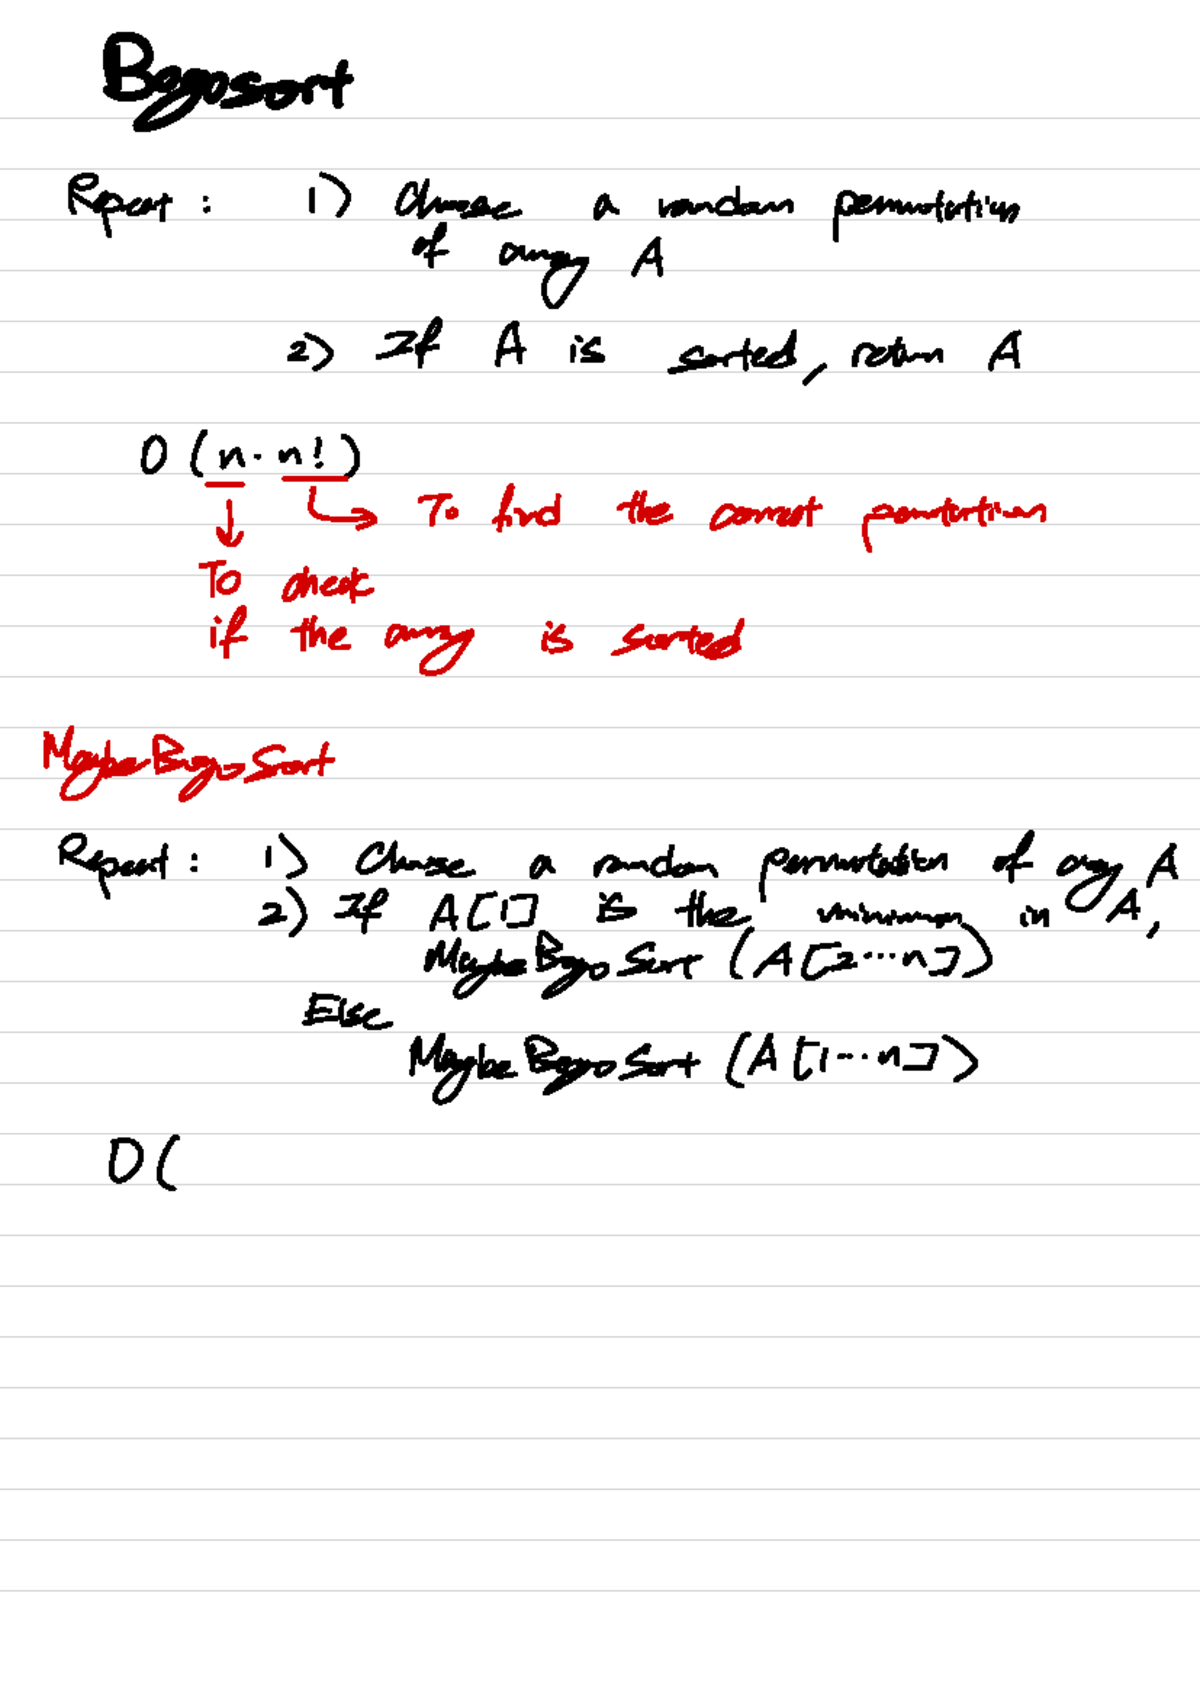 Bogosort
Repeat : 1) Choose a random permutation
of array A
2) If A is sorted, return A
O (n · n!)
To find the correct permutation
To check
if the array is sorted
MaybeBogoSort
Repeat : 1) Choose a random permutation of array A
2) If A[1] is the minimum in A,
MaybeBogoSort (A[2...n])
Else
MaybeBogoSort (A[1...n])
O (